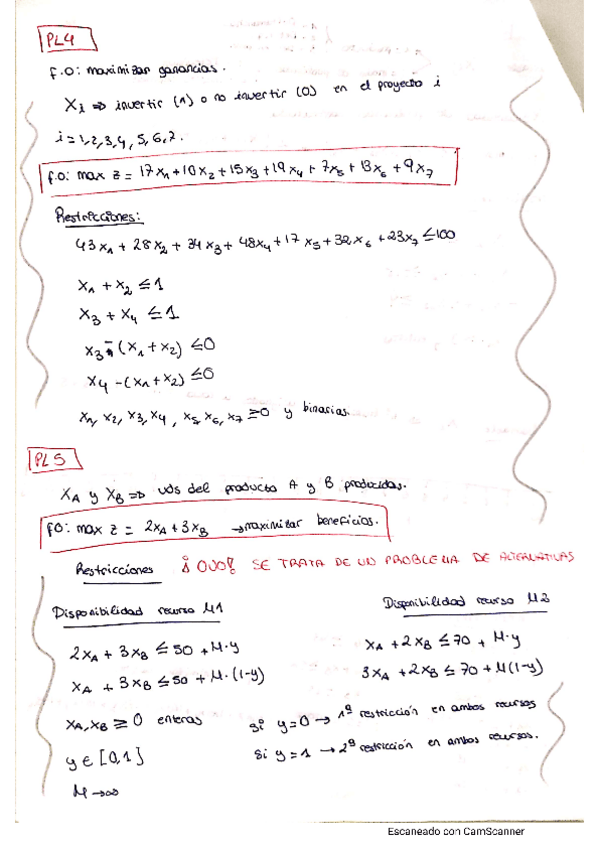 PL4
f.O: maximizar ganancias.
Xi ⇒ invertir (1) o no invertir (0) en el proyecto i
i=1,2,3,4,5,6,7.
f.O: max z = 17x1+10x2+15x3+19x4+7x5+13x6+9x7
Restricciones:
43x1 + 28x2 + 34x3 + 48x4 + 17x5 + 32x6 + 23x7 ≤100
x1 + x2 ≤ 1
x3 + x4 ≤ 1
x3 - (x1 + x2) ≤0
x4 - (x1 + x2) ≤0
x1, x2, x3, x4, x5, x6, x7 ≥0 y binarias.
PL5
XA y XB ⇒ uds del producto A y B producidas.
fO: max z = 2xA + 3xB → maximizar beneficios.
Restricciones ¡OJO! SE TRATA DE UN PROBLEMA DE ALTERNATIVAS
Disponibilidad recurso M1
2xA + 3xB ≤ 50 + M·y
xA + 3xB ≤ 50 + M·(1-y)
xA, xB ≥ 0 enteras
y ∈ [0,1]
M→∞
Disponibilidad recurso M2
xA + 2xB ≤ 70 + M·y
3xA + 2xB ≤ 70 + M(1-y)
si y=0 → 1ª restricción en ambos recursos
si y=1 → 2ª restricción en ambos recursos.
Escaneado con CamScanner